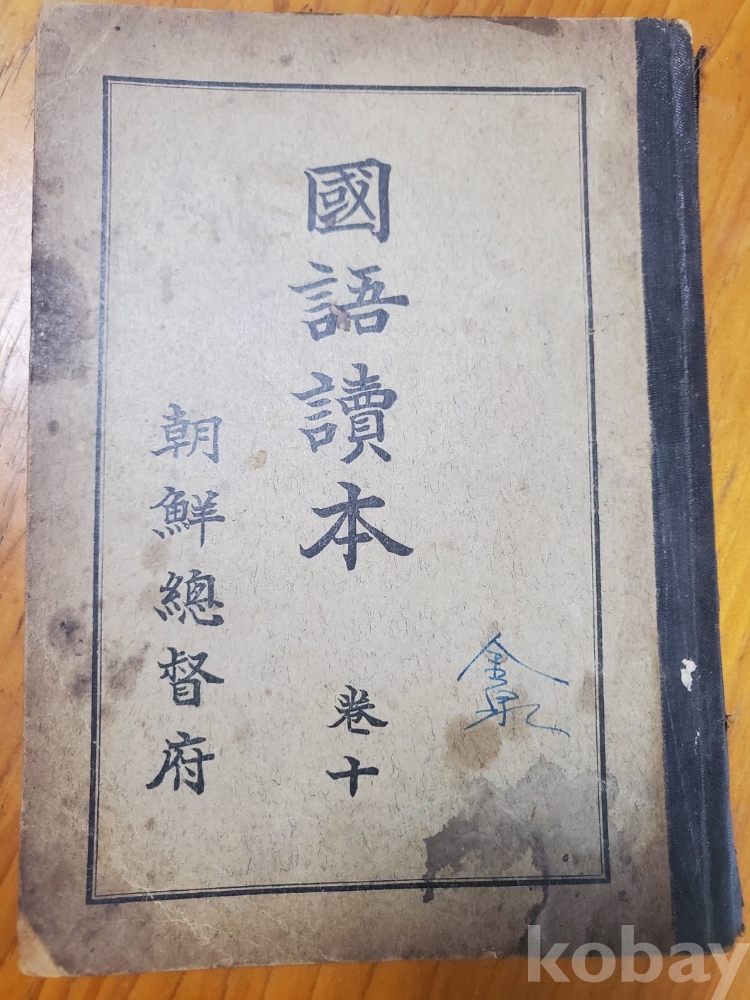 國語讀本
卷十
朝鮮總督府
kobay